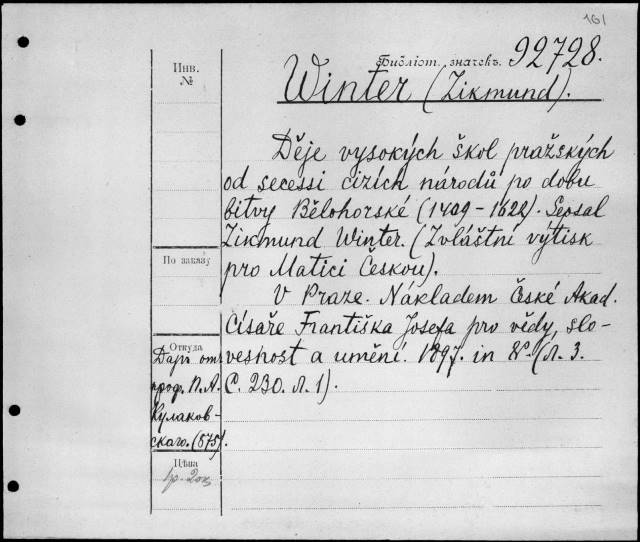 161
Инв.
№
Библіот. значекъ. 92728.
Winter (Zikmund).
Děje vysokých škol pražských
od secessí cizích národů po dobu
bitvy Bělohorské (1409-1622). Sepsal
Zikmund Winter. (Zvláštní výtisk
pro Matici Českou).
V Praze. Nákladem České Akad.
Císaře Františka Josefa pro vědy, slo-
vesnost a umění. 1897. in 8º. (л. 3.
С. 230. л. 1).
По заказу
Откуда
Даръ от
проф. П. А.
Кулаков-
скаго. (875).
Цѣна